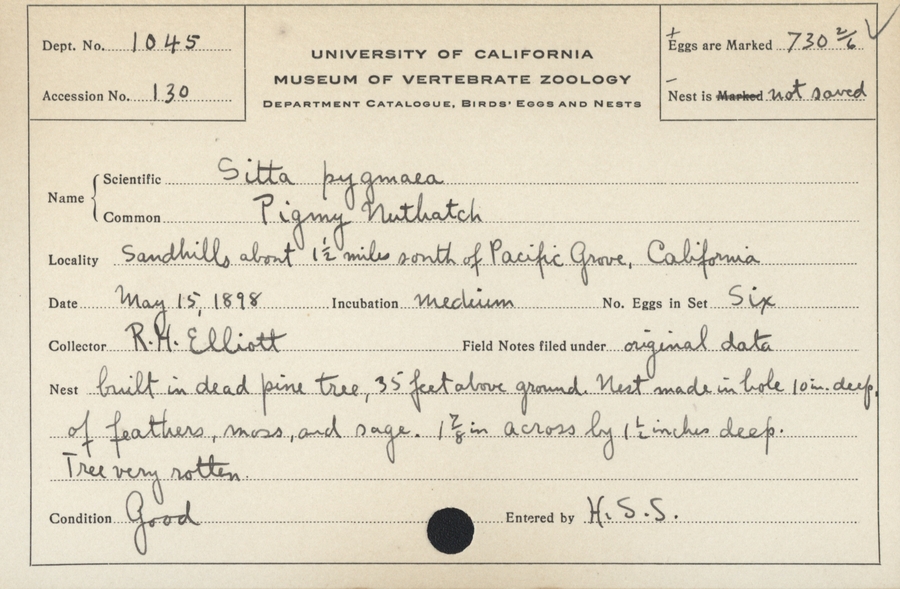 Dept. No. 1045
Accession No. 130
UNIVERSITY OF CALIFORNIA
MUSEUM OF VERTEBRATE ZOOLOGY
DEPARTMENT CATALOGUE, BIRDS' EGGS AND NESTS
+
Eggs are Marked 730 2/6 ✓
-
Nest is Marked not saved
Name { Scientific Sitta pygmaea
Common Pigmy Nuthatch
Locality Sandhills about 1½ miles south of Pacific Grove, California
Date May 15, 1898 Incubation medium No. Eggs in Set Six
Collector R.H. Elliott Field Notes filed under original data
Nest built in dead pine tree, 35 feet above ground. Nest made in hole 10 in. deep,
of feathers, moss, and sage. 1⅞ in across by 1½ inches deep.
Tree very rotten.
Condition Good Entered by H.S.S.